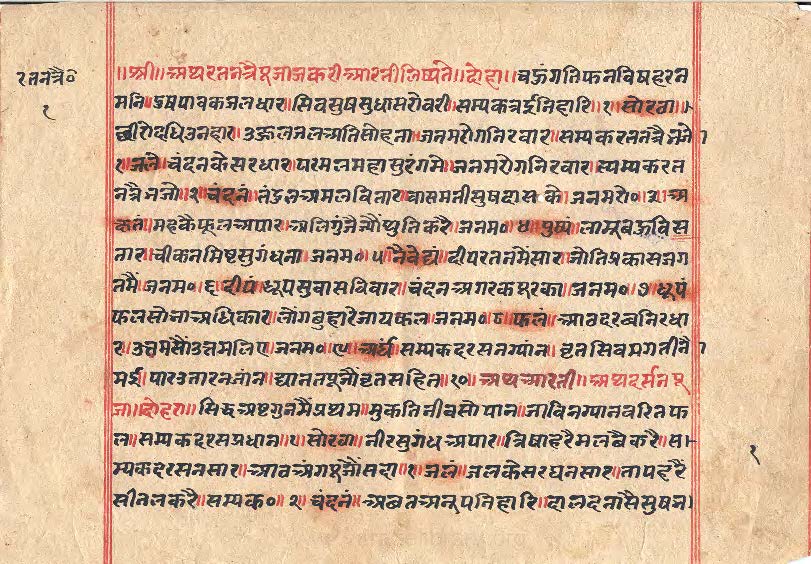 रतनत्रै०
१
॥श्री॥अथरतनत्रैपूजाजकरीआरतीलिष्यते॥दोहा॥चऊंगतिफनविषहरन
मनि॥दुषपावकजलधार॥सिवसुषसुधासरोवरी॥सम्यकत्रईनिहारि॥१॥सोरठा॥
छीरोदधिउनहार॥उज्जलजलअतिसोहना॥जनमरोगनिरवार॥सम्यकरतनत्रैजजो
१॥जलं॥चंदनकेसरधार॥परमलमहासुरंगमे॥जनमरोगनिरवार॥सम्यकरत
नत्रैजजो॥२॥चंदनं॥तंदुलअमलवितार॥वासमतीसुषदासके॥जनमरो०॥३॥अ
क्षतं॥महकैफूलअपार॥अलिगुंजैज्यौंथुतिकरै॥जनम०॥४॥पुष्पं॥लाडूबऊविस
तार॥चीकनमिष्टसुगंधता॥जनम०॥५॥नैवेद्यं॥दीपरतनमैंसार॥जोतिप्रकासजग
तमैं॥जनम०॥६॥दीपं॥धूपसुवासविथार॥चंदनअगरकपूरका॥जनम०॥७॥धूपं
फलसोभाअधिकार॥लौंगबुहारेजायफल॥जनम०॥८॥फलं॥आठदरबनिरधा
र॥उत्तमसौंउत्तमलिए॥जनम०॥९॥अर्घं॥सम्यकदरसनग्यांन॥वृतसिवमगतीनौं
मई॥पारउतारनजांन॥द्यानतपूजौंवृतसहित॥१०॥अथआरती॥अथदर्सनपू
जा॥दोहरा॥सिद्धअष्टगुनमैंप्रथम॥मुकतिजीवसोपान॥जाविनग्यानचरितफ
ल॥सम्यकदरसप्रधान॥१॥सोरठा॥नीरसुगंधअपार॥त्रिषाहरैमलछैकरै॥स
म्यकदरसनसार॥आठअंगपूजौंसदा॥१॥जलं॥जलकेसरघनसार॥तापहरैं
सीतलकरै॥सम्यक०॥२॥चंदनं॥अछतअनूपनिहारि॥दालदनासैसुषन
१